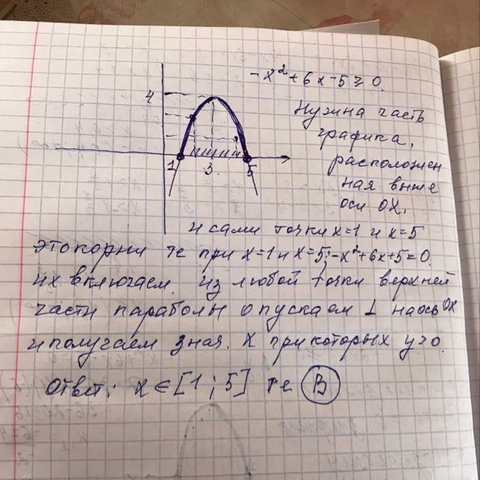 -x²+6x-5≥0.
Нужна часть
графика,
расположен
ная выше
оси OX,
4
1 3. 5
и сами точки x=1 и x=5
это корни те при x=1 и x=5; -x²+6x+5=0
их включаем. Из любой точки верхней
части параболы опускаем ⊥ на ось OX
и получаем знач. x при которых y>0.
Ответ: x∈[1;5] те В